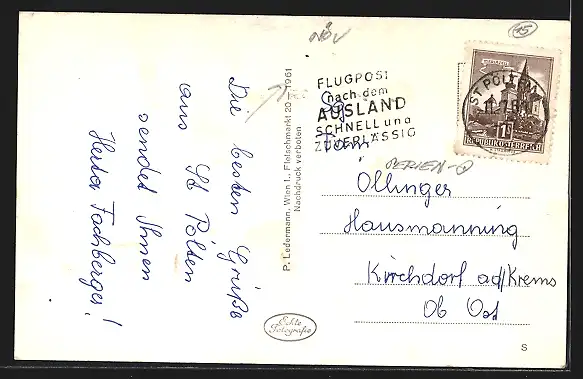 Die besten Grüße
aus St Pölten
sendet Ihnen
Herta Fachberger!
P. Ledermann, Wien I., Fleischmarkt 20 — 1961
Nachdruck verboten
Echte
Fotografie
FLUGPOST
nach dem
AUSLAND
SCHNELL und
ZUVERLÄSSIG
ST PÖLTEN
1S
REPUBLIK ÖSTERREICH
15
NÖ
Fam
SERIEN-
Öllinger
Hausmanning
Kirchdorf ad/Krems
Ob Öst
S